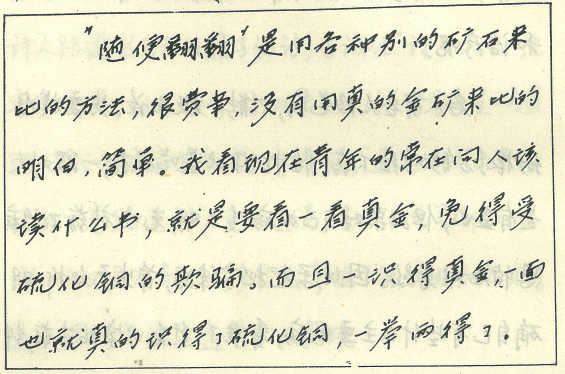 "随便翻翻"是用各种别的矿石来
比的方法，很费事，没有用真的金矿来比的
明白，简单。我看现在青年的常在问人该
读什么书，就是要看一看真金，免得受
硫化铜的欺骗。而且一识得真金，一面
也就真的识得了硫化铜，一举两得了。